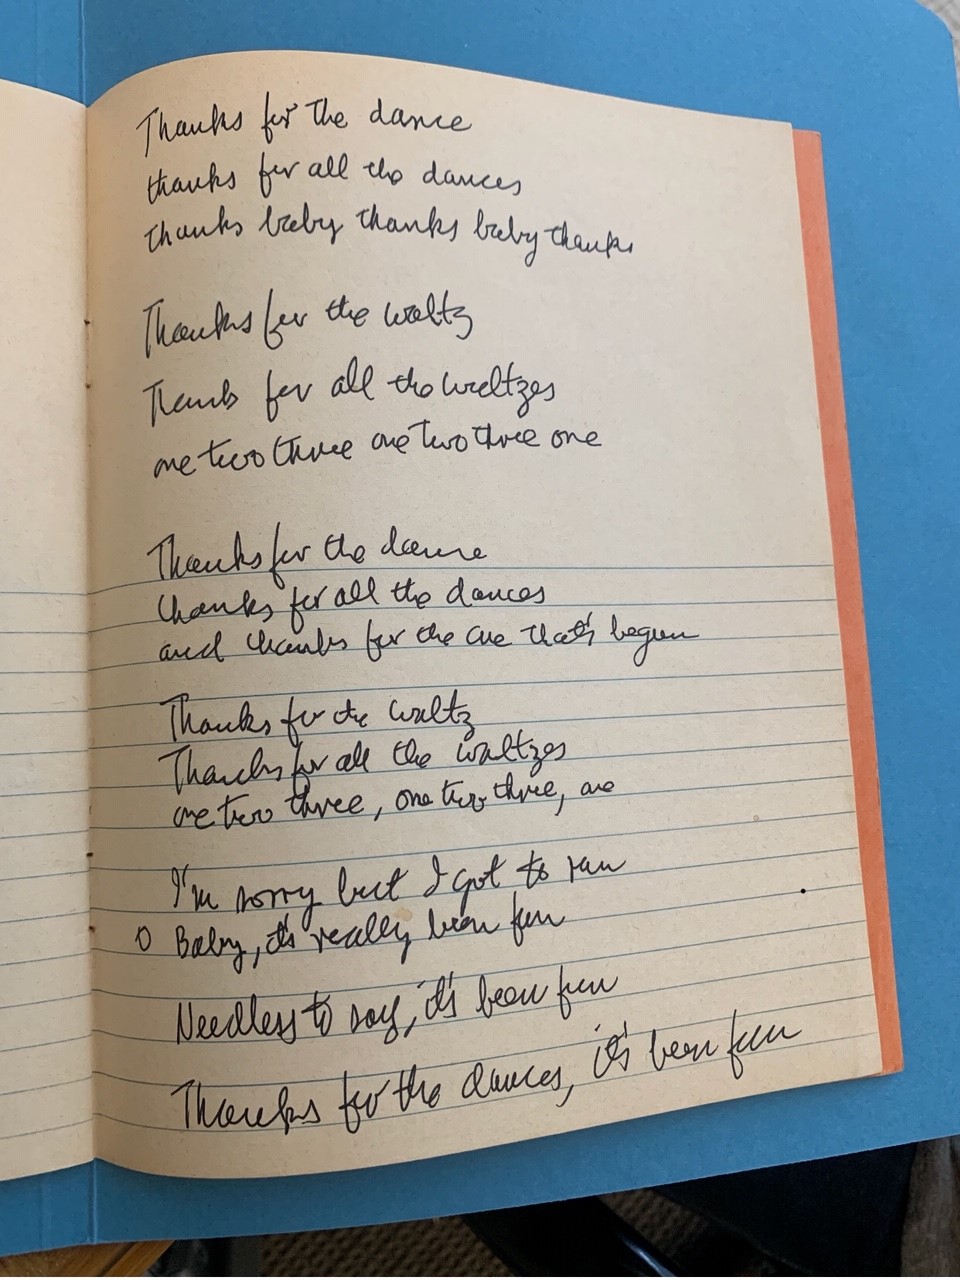 Thanks for the dance
thanks for all the dances
thanks baby thanks baby thanks
Thanks for the waltz
Thanks for all the waltzes
one two three one two three one
Thanks for the dance
thanks for all the dances
and thanks for the one that's begun
Thanks for the waltz
Thanks for all the waltzes
one two three, one two three, one
I'm sorry but I got to run
O Baby, it's really been fun
Needless to say, it's been fun
Thanks for the dances, it's been fun